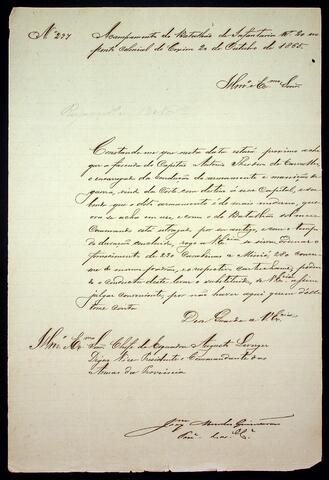 Nº 277
Acampamento do Batalhão de Infantaria Nº 20 no
ponto colonial de Coxim 20 de Outubro de 1865.
Illmo e Exmo Snr.
Constando me que nesta data estará proximo a che
gar a fazenda do Capitão Antonio Theodoro de Carvalho
o encarregado da conducção de armamento e munições de
guerra, vindo da Corte com destino á essa Capital, e sa
bendo que o dito armamento é do mais moderno, que
ora se acha em uso, e como o do Batalhão sob meo
Commando está estragado, por ser antigo, e com o tempo
de duração concluido, rogo a V Excia se sirva ordenar o
fornecimento de 220 Carabinas a Minié,
me do mesmo padrão, e o respectivo cartuchame, poden
do o conductor deste levar o substituido, se V Excia assim
julgar conveniente, por não haver aqui quem d'elle
tome conta.
Deos Guarde a V Excia
Illmo e Exmo Snr. Chefe de Esquadra Augusto Leverger
Vice Presidente e Commandante das
Armas da Provincia
Joaqm Mendes Guimarães